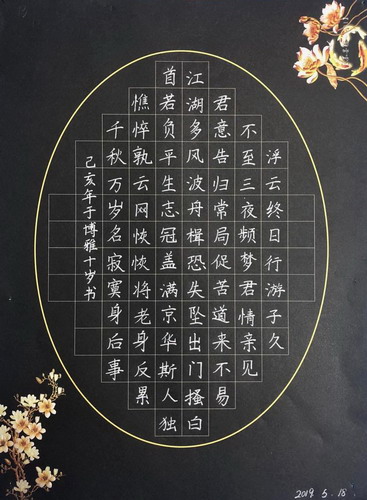 浮云终日行游子久
不至三夜频梦君情亲见
君意告归常局促苦道来不易
江湖多风波舟楫恐失坠出门搔白
首若负平生志冠盖满京华斯人独
憔悴孰云网恢恢将老身反累
千秋万岁名寂寞身后事
己亥年于博雅十岁书
2019.5.18.